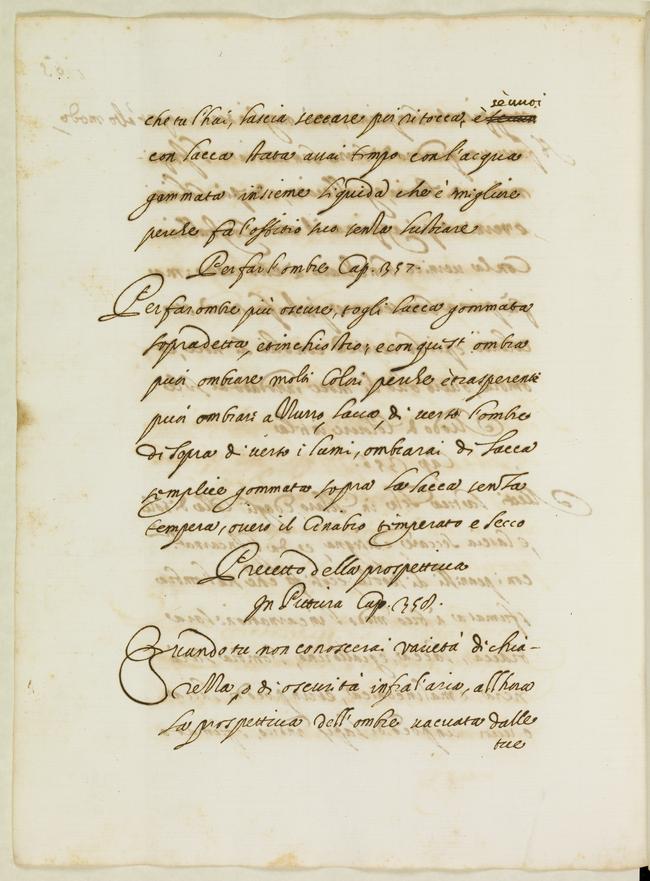 che tu l'hai, lascia seccare poi ritocca, è sè uuoi
con lacca stata assai tempo con l'acqua
gommata insieme liquida che è migliore
perche fa l'offitio suo senza lustrare
Per far l'ombre Cap. 357.
Per far ombre più oscure, togli lacca gommata
sopradetta, et inchiostro; e con quest' ombra
puoi ombrare molti Colori perche è trasperente
puoi ombrare Azurro, lacca, di verso l'ombre
di sopra di verso i lumi, ombrarai di lacca
semplice gommata sopra la lacca senza
tempera, overo il Cinabro temperato e secco
Precetto della prospettiva
In Pittura Cap. 358.
Quando tu non conoscerai varietà di chia-
rezza, o di oscurità infra l'aria, allhora
la prospettiva dell'ombre uacuata dalle
tue